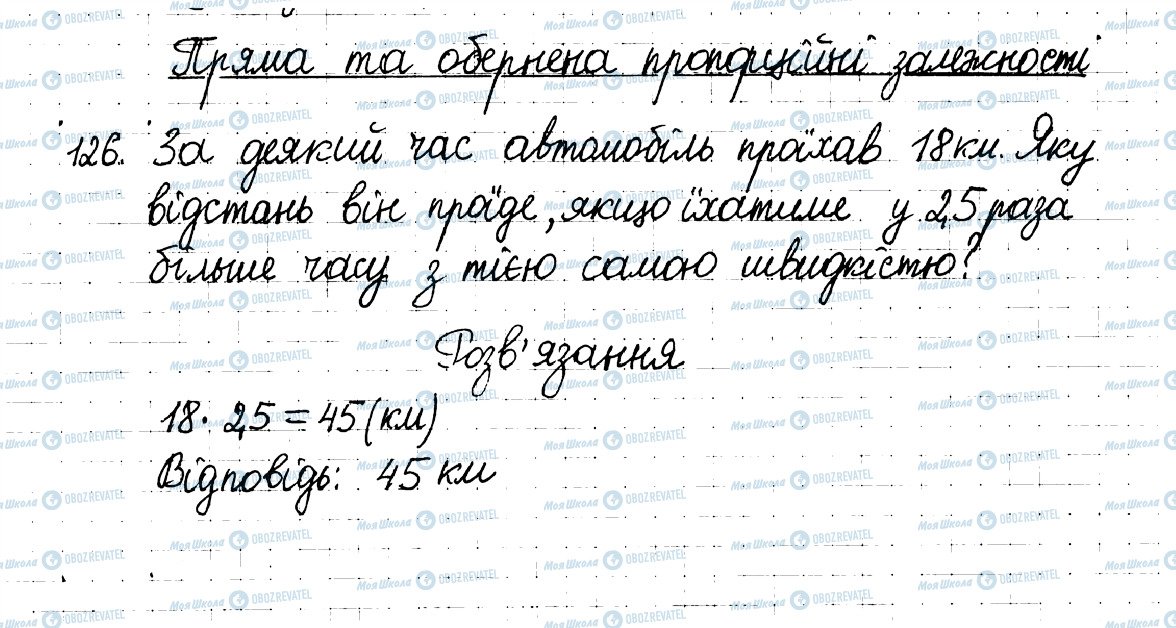 Пряма та обернена пропорційні залежності
126. За деякий час автомобіль проїхав 18 км. Яку
відстань він проїде, якщо їхатиме у 2,5 раза
більше часу з тією самою швидкістю?
Розв'язання
18 · 2,5 = 45 (км)
Відповідь: 45 км
Моя Школа OBOZREVATEL